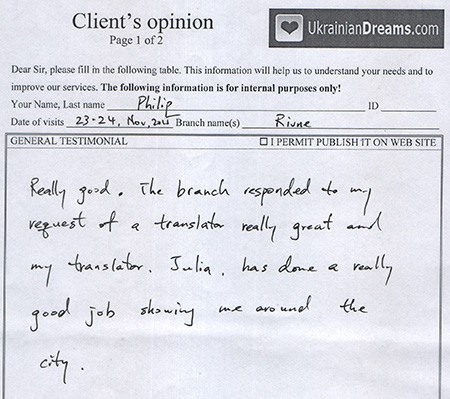 Client's opinion
Page 1 of 2
UkrainianDreams.com
Dear Sir, please fill in the following table. This information will help us to understand your needs and to
improve our services. The following information is for internal purposes only!
Your Name, Last name Philip ID
Date of visits 23-24, Nov, Branch name(s) Rivne
GENERAL TESTIMONIAL ☐ I PERMIT PUBLISH IT ON WEB SITE
Really good. The branch responded to my
request of a translator really great and
my translator. Julia. has done a really
good job showing me around the
city.